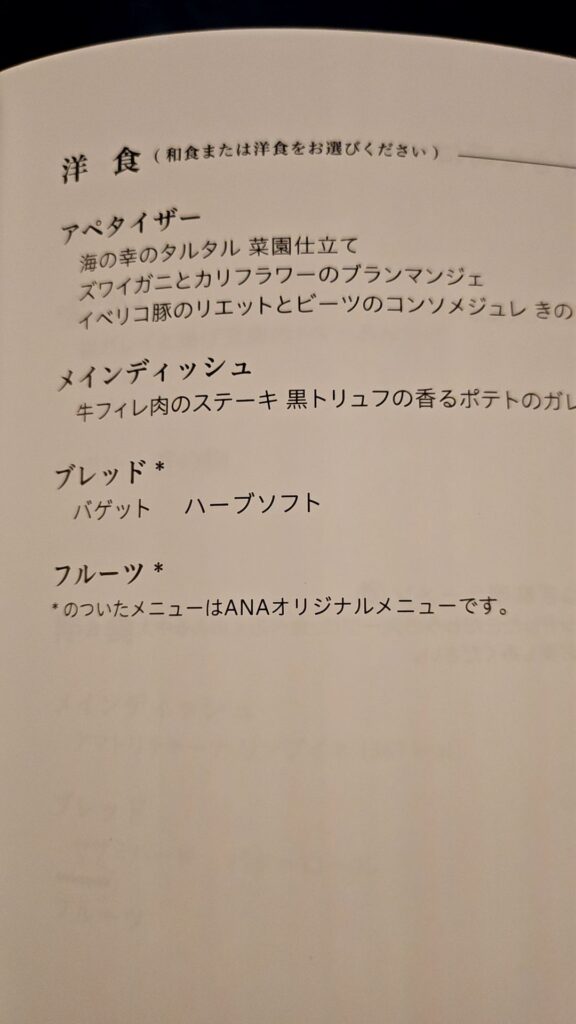 洋 食 (和食または洋食をお選びください)
アペタイザー
海の幸のタルタル 菜園仕立て
ズワイガニとカリフラワーのブランマンジェ
イベリコ豚のリエットとビーツのコンソメジュレ きの
メインディッシュ
牛フィレ肉のステーキ 黒トリュフの香るポテトのガレ
ブレッド *
バゲット ハーブソフト
フルーツ *
* のついたメニューはANAオリジナルメニューです。